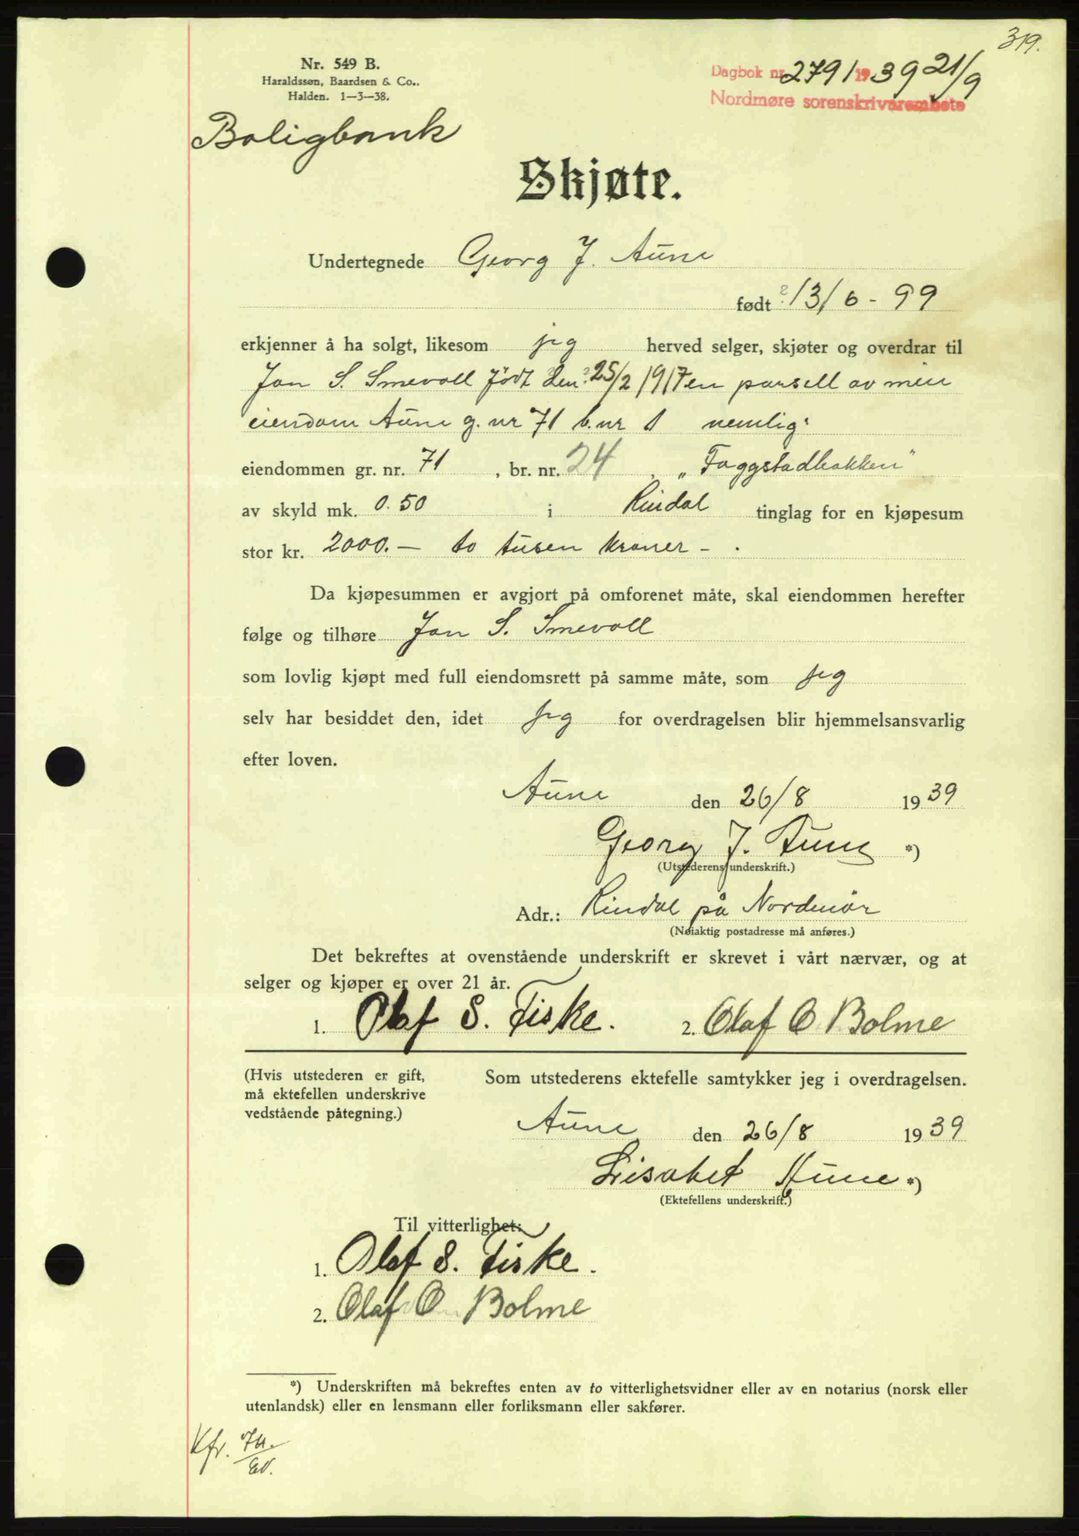 319.
Nr. 549 B.
Haraldssøn, Baardsen & Co..
Halden. 1—3—38.
Dagbok nr. 2791 1939 21/9
Nordmøre sorenskriverembete
Boligbank
Skjøte.
Undertegnede Georg J. Aune
født 13/6 - 99
erkjenner å ha solgt, likesom jeg herved selger, skjøter og overdrar til
Jon S. Smevoll født den 25/2 1917 en parsell av min
eiendom Aune g. nr 71 b. nr 1 nemlig:
eiendommen gr. nr. 71, br. nr. 24, „Faggstadbakken"
av skyld mk. 0.50 i Rindal tinglag for en kjøpesum
stor kr. 2000.— to tusen kroner - .
Da kjøpesummen er avgjort på omforenet måte, skal eiendommen herefter
følge og tilhøre Jon S. Smevoll
som lovlig kjøpt med full eiendomsrett på samme måte, som jeg
selv har besiddet den, idet jeg for overdragelsen blir hjemmelsansvarlig
efter loven.
Aune den 26/8 1939
Georg J. Aune *)
(Utstederens underskrift.)
Adr.: Rindal på Nordmør
(Nøiaktig postadresse må anføres.)
Det bekreftes at ovenstående underskrift er skrevet i vårt nærvær, og at
selger og kjøper er over 21 år.
1. Olaf S. Fiske. 2. Olaf O Bolme
(Hvis utstederen er gift,
må ektefellen underskrive
vedstående påtegning.)
Som utstederens ektefelle samtykker jeg i overdragelsen.
Aune den 26/8 1939
Lisabet Aune *)
(Ektefellens underskrift.)
Til vitterlighet:
1. Olaf S. Fiske.
2. Olaf O Bolme
*) Underskriften må bekreftes enten av to vitterlighetsvidner eller av en notarius (norsk eller
utenlandsk) eller en lensmann eller forliksmann eller sakfører.
Kfr.